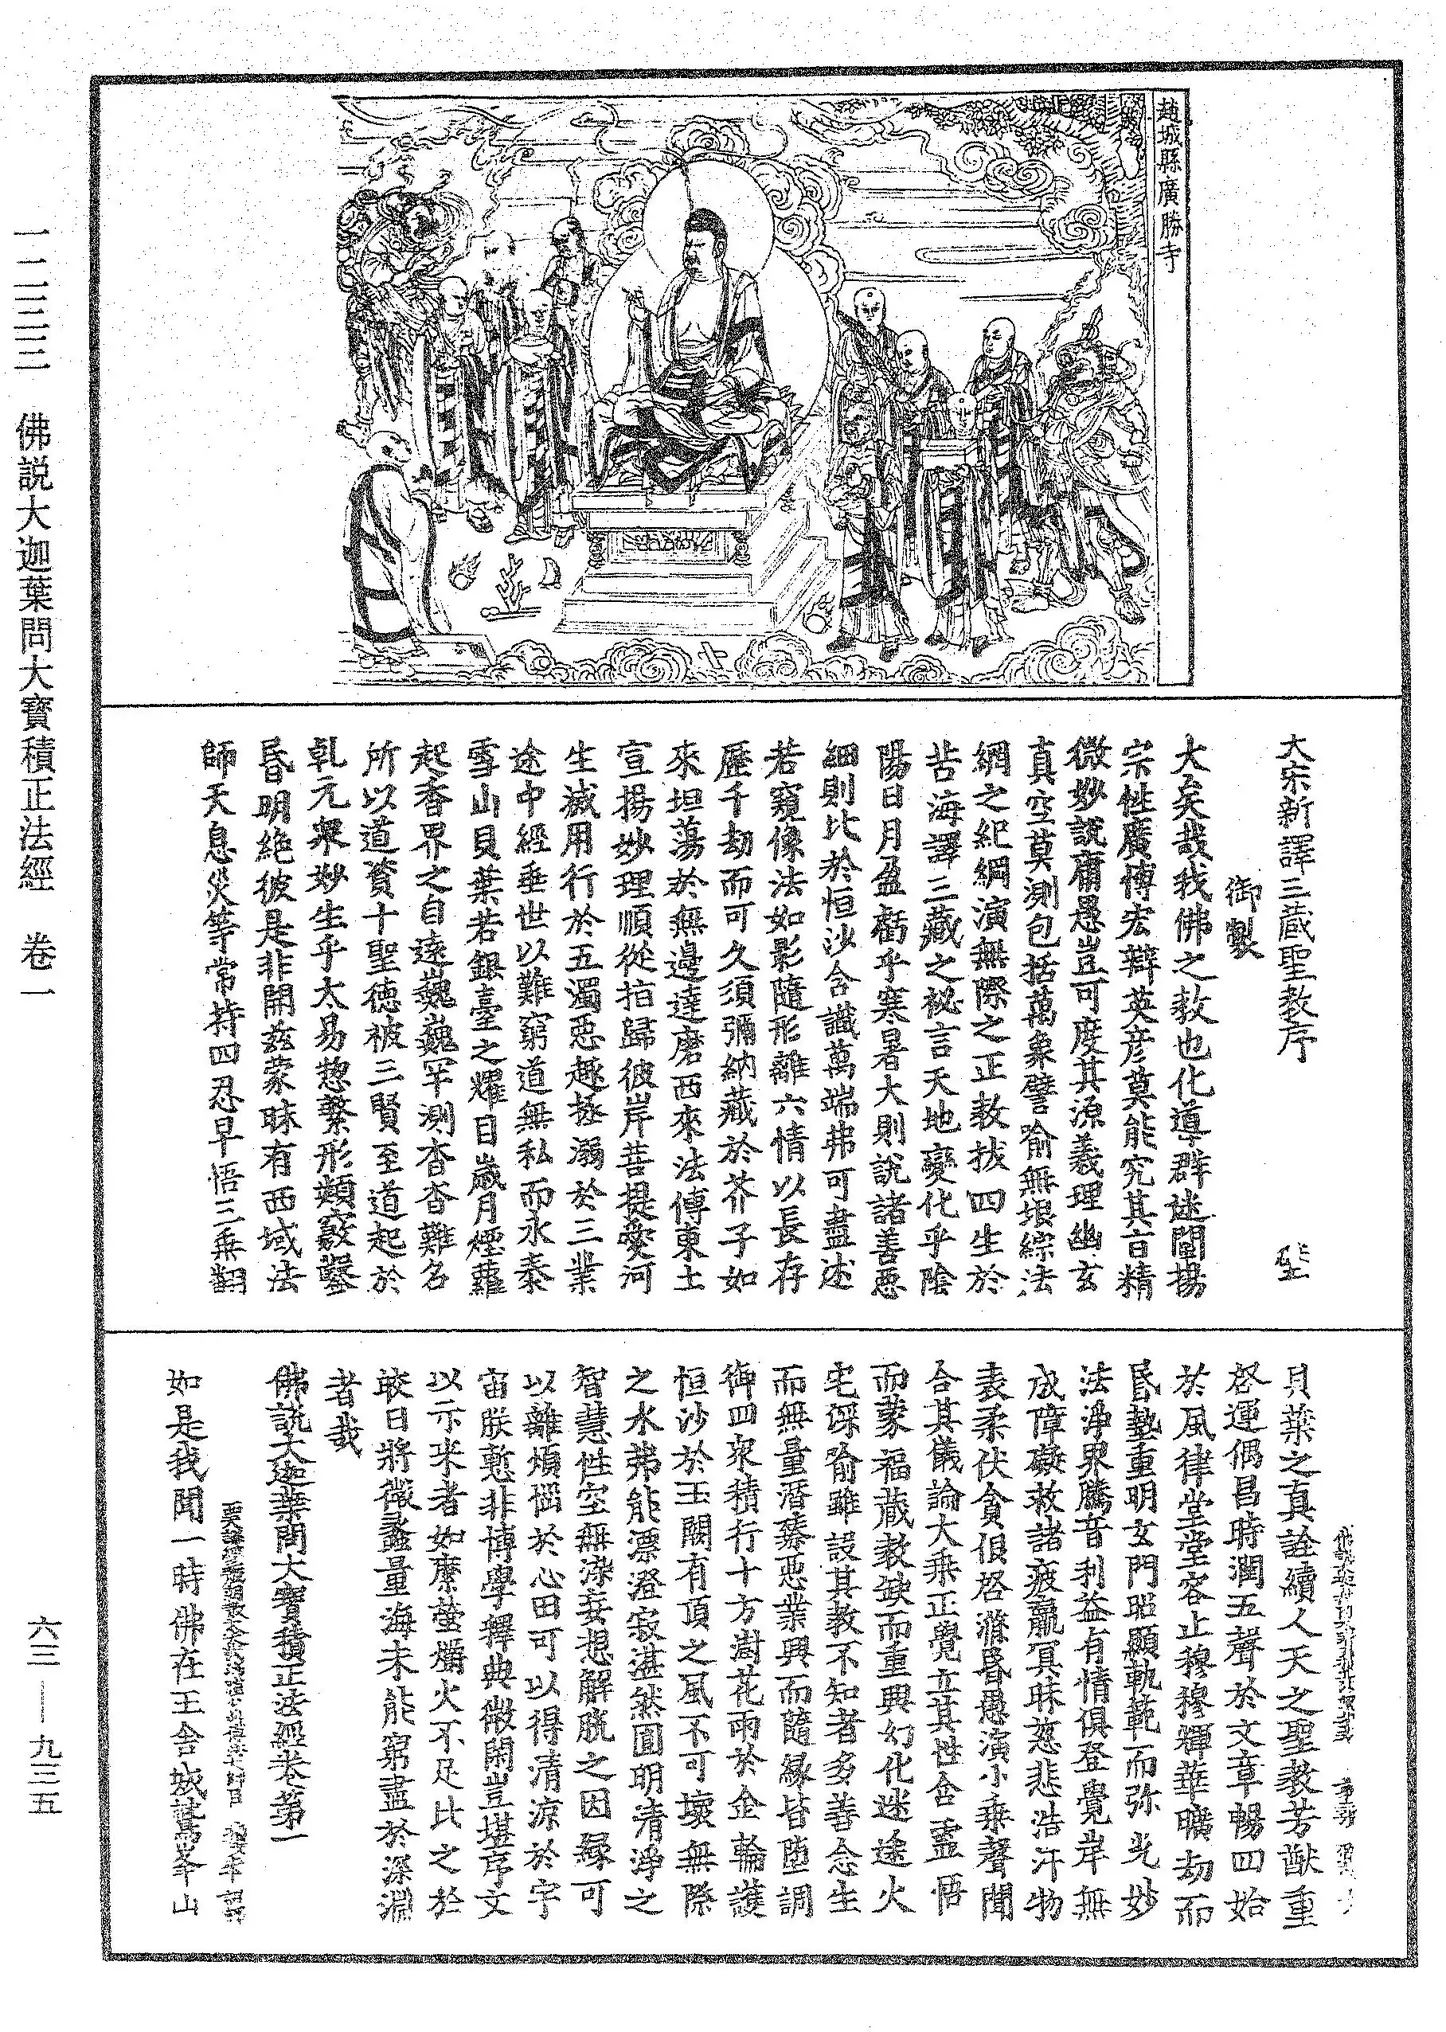 趙城縣廣勝寺
大宋新譯三藏聖教序
御製
大矣哉我佛之教也化導群迷闡揚
宗性廣博宏辯英彦莫能究其旨精
微妙說庸愚豈可度其源義理幽玄
真空莫測包括萬象譬喻無垠綜法
網之紀綱演無際之正教拔四生於
苦海譯三藏之祕言天地變化乎陰
陽日月盈虧乎寒暑大則說諸善惡
細則比於恒沙含識萬端弗可盡述
若窺像法如影隨形離六情以長存
歷千劫而可久須彌納藏於芥子如
來坦蕩於無邊達磨西來法傳東土
宣揚妙理順從指歸彼岸菩提愛河
生滅用行於五濁惡趣拯溺於三業
途中經垂世以難窮道無私而永泰
雪山貝葉若銀臺之耀目歲月煙蘿
起香界之自遠巍巍罕測杳杳難名
所以道資十聖德被三賢至道起於
乹元衆妙生乎太易惣繫形類竅鑿
昏明絶彼是非開兹蒙昧有西域法
師天息災等常持四忍早悟三乘翻
貝葉之真詮續人天之聖教芳猷重
啓運偶昌時潤五聲於文章暢四始
於風律堂堂容止穆穆輝華曠劫而
昏墊重明玄門昭顯軌範而弥光妙
法淨界騰音利益有情俱登覺岸無
成障礙救諸疲羸冥昧慈悲浩汗物
表柔伏貪佷啓滌昏愚演小乘聲聞
合其儀論大乘正覺立其性含靈悟
而蒙福藏教缺而重興幻化迷途火
宅深喻雖設其教不知者多善念生
而無量潛臻惡業興而隨緣皆墮調
御四衆積行十方澍花雨於金輪護
恒沙於玉闕有頂之風不可壞無際
之水弗能漂澄寂湛然圓明清淨之
智慧性空無染妄想解脱之因緣可
以離煩惱於心田可以得清涼於宇
宙朕慙非博學釋典微閑豈堪序文
以示來者如縻螢爝火不足比之於
皎日將微蠡量海未能窮盡於深淵
者哉
佛說大迦葉問大寶積正法經卷第一
如是我聞一時佛在王舍城鷲峯山
一二三三 佛説大迦葉問大寶積正法經 卷一
六三——九三五